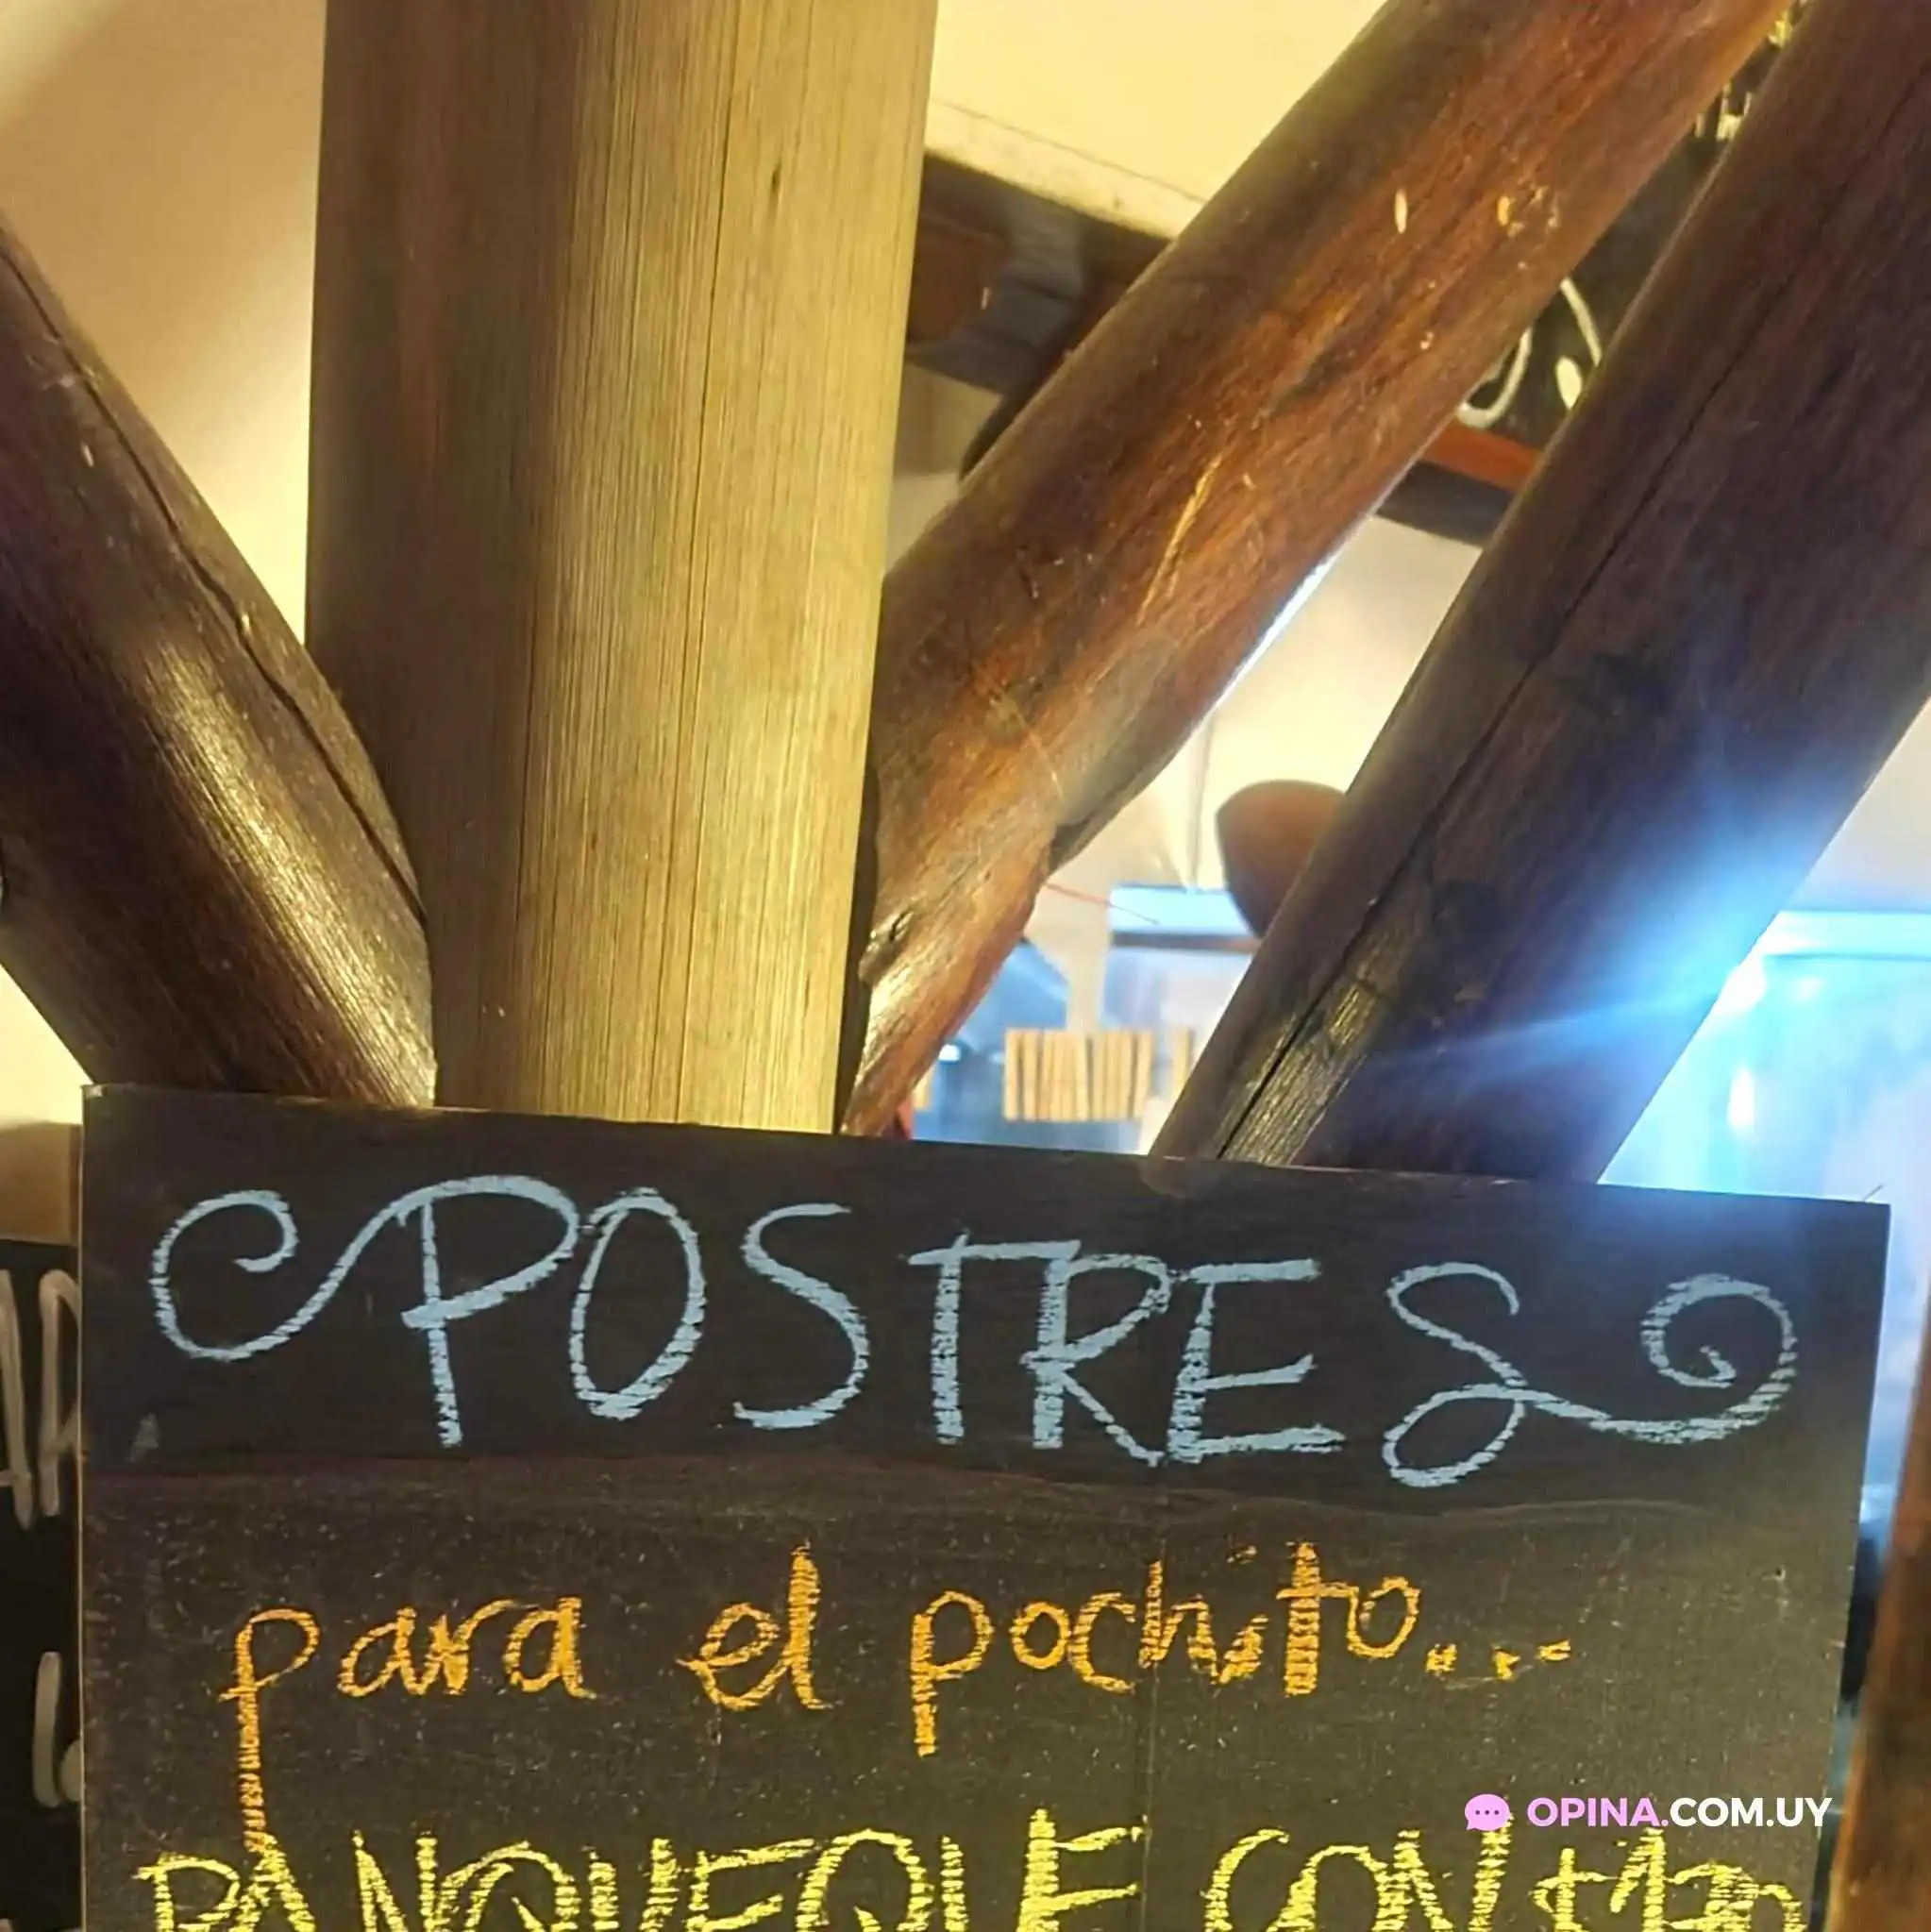 POSTRES
para el pochito...
PANQUEQUE CON
OPINA.COM.UY